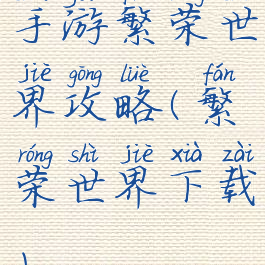 手游繁荣世
jiè gōng lüè fán
界攻略(繁
róng shì jiè xià zài
荣世界下载
)